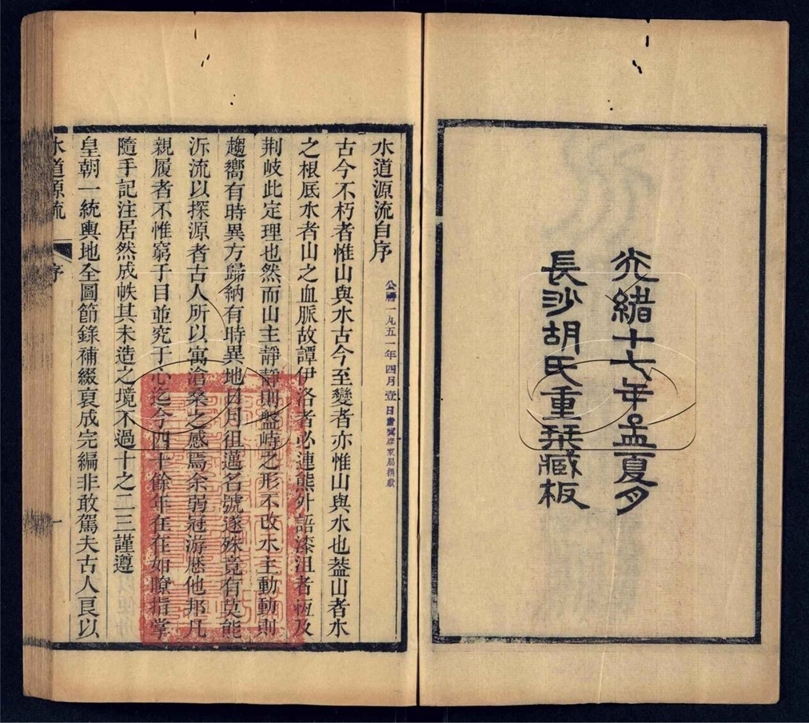 光緒十七年孟夏月
長沙胡氏重栞藏板
水道源流自序
古今不朽者惟山與水古今至變者亦惟山與水也葢山者水
之根底水者山之血脈故譚伊洛者必連熊外語漆沮者恆及
荆岐此定理也然而山主靜靜則盤峙之形不改水主動動則
趨嚮有時異方歸納有時異地日月徂邁名號遂殊竟有莫能
泝流以探源者古人所以寓滄桑之感焉余弱冠游歷他邦凡
親履者不惟窮于目並究于心迄今四十餘年在在如瞭指掌
隨手記注居然成帙其未造之境不過十之二三謹遵
皇朝一統輿地全圖節錄補綴裒成完編非敢駕夫古人良以
水道源流
序
一